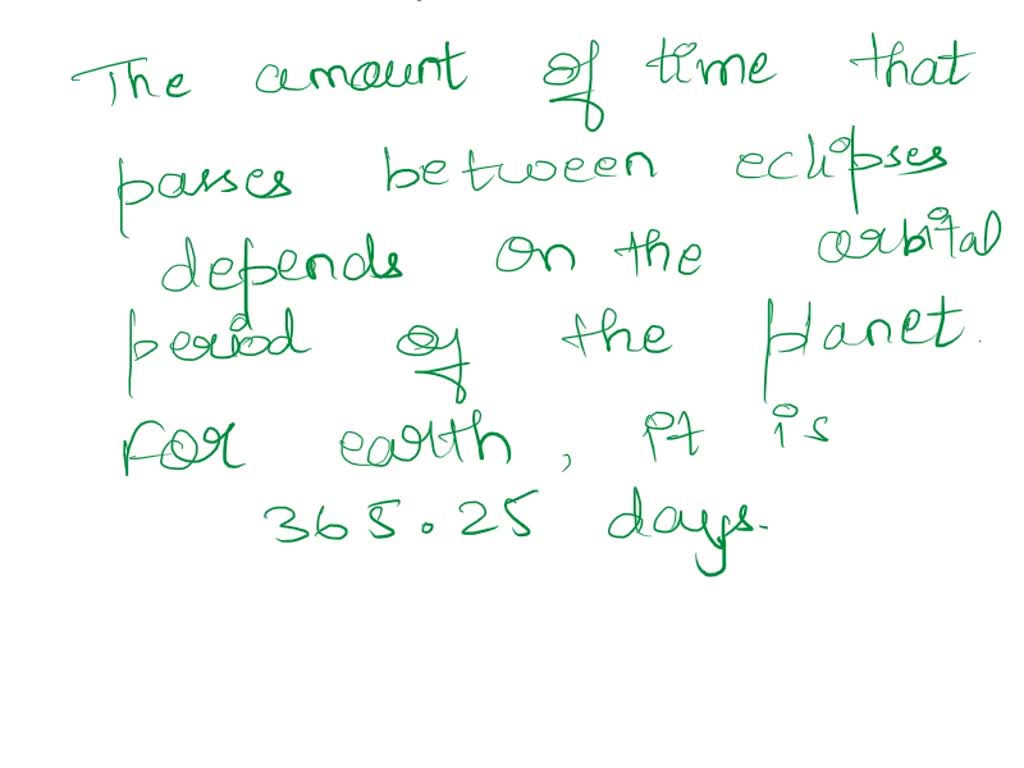 The amount of time that
passes between eclipses
depends on the orbital
period of the planet.
For earth, it is
365.25 days.